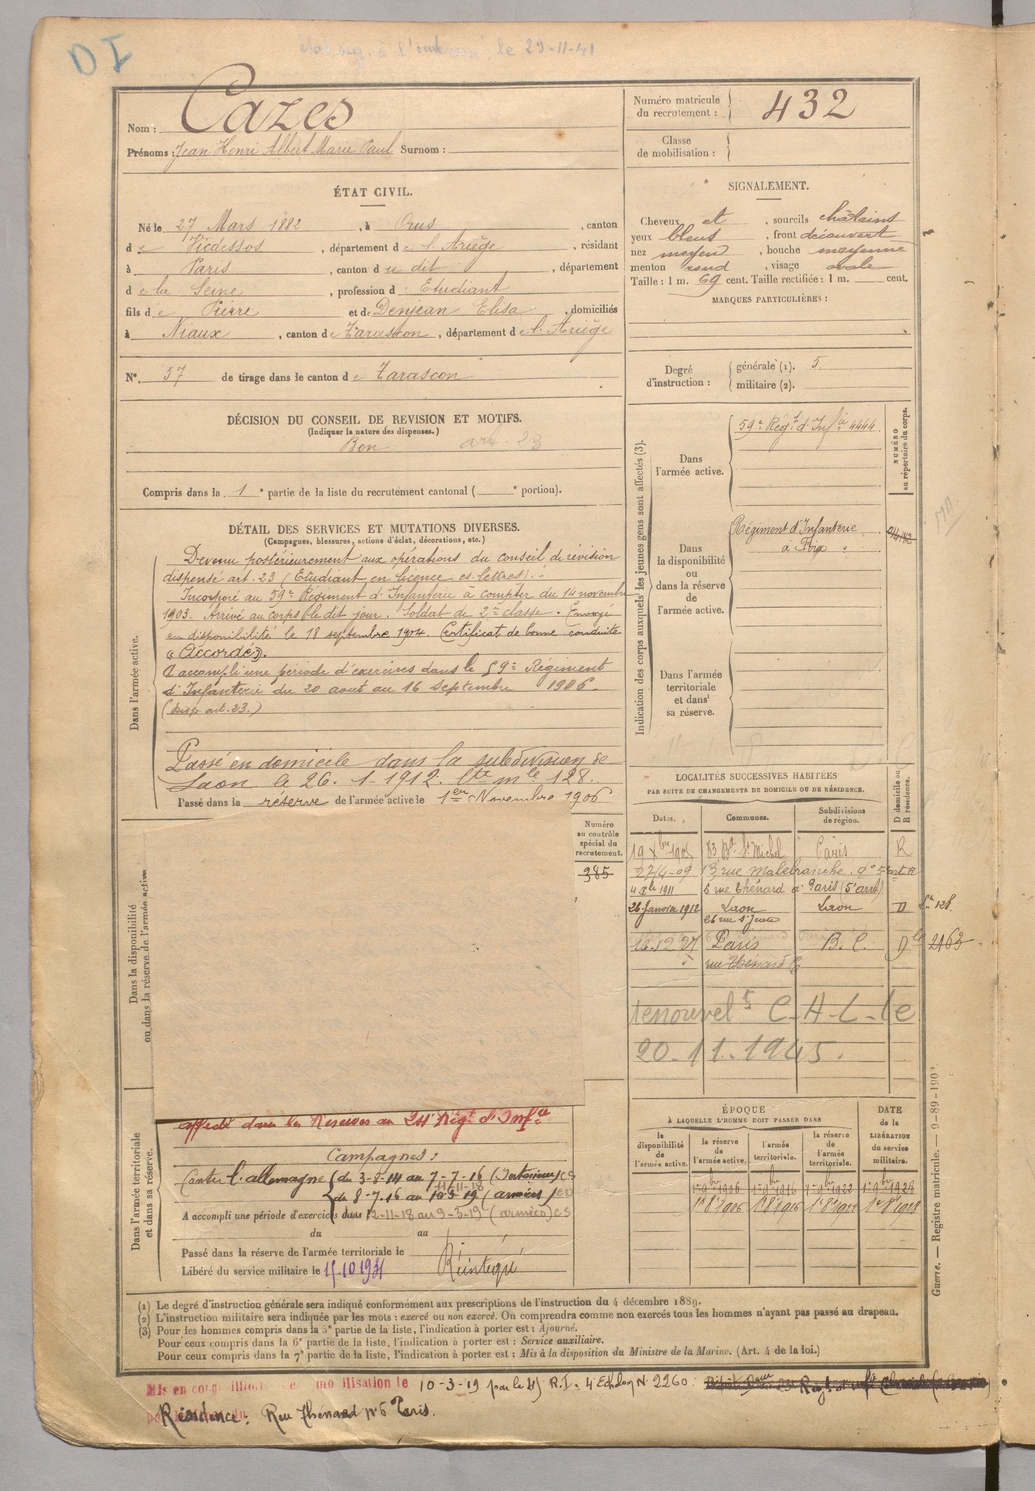 DI
le 29-11-41
Nom : Cazes
Prénoms : Jean Henri Albert Marie Paul Surnom :
Numéro matricule du recrutement : 432
Classe de mobilisation :
ÉTAT CIVIL.
Né le 27 Mars 1882, à Orus, canton
de Vicdessos, département de l'Ariège, résidant
à Paris, canton du dit, département
de la Seine, profession d Etudiant
fils de Pierre et de Denjean Elisa, domiciliés
à Niaux, canton de Tarascon, département de l'Ariège
N° 37 de tirage dans le canton de Tarascon
SIGNALEMENT.
Cheveux et, sourcils châtains
yeux bleus, front découvert
nez moyen, bouche moyenne
menton rond, visage ovale
Taille : 1 m. 69 cent. Taille rectifiée : 1 m. cent.
MARQUES PARTICULIÈRES :
Degré d'instruction : générale (1). 5
militaire (2).
DÉCISION DU CONSEIL DE REVISION ET MOTIFS.
(Indiquer la nature des dispenses.)
Bon art. 23
Compris dans la 1e partie de la liste du recrutement cantonal ( e portion).
DÉTAIL DES SERVICES ET MUTATIONS DIVERSES.
(Campagnes, blessures, actions d'éclat, décorations, etc.)
Dans l'armée active.
Devenu postérieurement aux opérations du conseil de révision
dispensé art. 23 (Etudiant en Licence es-lettres).
Incorporé au 59e Régiment d'Infanterie à compter du 14 novembre
1903. Arrivé au corps le dit jour. Soldat de 2e classe. Envoyé
en disponibilité le 18 septembre 1904. Certificat de bonne conduite
"Accordé".
A accompli une période d'exercices dans le 59e Régiment
d'Infanterie du 20 aout au 16 Septembre 1906.
(disp. art. 23.)
Passé en domicile dans la subdivision de
Laon le 26. 1. 1912. Cte mle 128.
Passé dans la réserve de l'armée active le 1er Novembre 1906
Indication des corps auxquels les jeunes gens sont affectés (3).
NUMÉRO au répertoire du corps.
Dans l'armée active.
59e Régt d'Infie 4444
Dans la disponibilité ou dans la réserve de l'armée active.
Régiment d'Infanterie
à Foix
Dans l'armée territoriale et dans sa réserve.
LOCALITÉS SUCCESSIVES HABITÉES
PAR SUITE DE CHANGEMENTS DE DOMICILE OU DE RÉSIDENCE.
Dates. Communes. Subdivisions de région. D domicile ou R résidence.
83 Bd St Michel Paris R
27-4-09 13 rue Malebranche
1911 6 rue Thénard à Paris (5 art)
26 Janvier 1912 Laon Laon D 128
16.12.27 Paris B.C. D 2163
rue Thénard 6
renouvelt C-H-L-le
20-11-1945.
Dans la disponibilité ou dans la réserve de l'armée active
Numéro au contrôle spécial du recrutement.
385
Dans l'armée territoriale et dans sa réserve.
affecté dans les Réserves au 24e Régt d'Infie
Campagnes :
Contre l'allemagne (du 3-8-14 au 7-7-16 (Intérieur) CS
du 8-7-16 au (armées)
A accompli une période d'exercices dans 12-11-18 au 9-3-19 (armées) CS
du au
Passé dans la réserve de l'armée territoriale le
Libéré du service militaire le 15.10.1931 Réintégré
ÉPOQUE
À LAQUELLE L'HOMME DOIT PASSER DANS
la disponibilité de l'armée active. la réserve de l'armée active. l'armée territoriale. la réserve de l'armée territoriale.
DATE DE LA LIBÉRATION du service militaire.
Guerre. — Registre matricule.
(1) Le degré d'instruction générale sera indiqué conformément aux prescriptions de l'instruction du 4 décembre 1889.
(2) L'instruction militaire sera indiquée par les mots : exercé ou non exercé. On comprendra comme non exercés tous les hommes n'ayant pas passé au drapeau.
(3) Pour les hommes compris dans la 5e partie de la liste, l'indication à porter est : Ajourné.
Pour ceux compris dans la 6e partie de la liste, l'indication à porter est : Service auxiliaire.
Pour ceux compris dans la 7e partie de la liste, l'indication à porter est : Mis à la disposition du Ministre de la Marine. (Art. 4 de la loi.)
le 10-3-19 par le R.I. 4e Echelon N° 2260
Résidence : Rue Thénard N° 6 Paris.